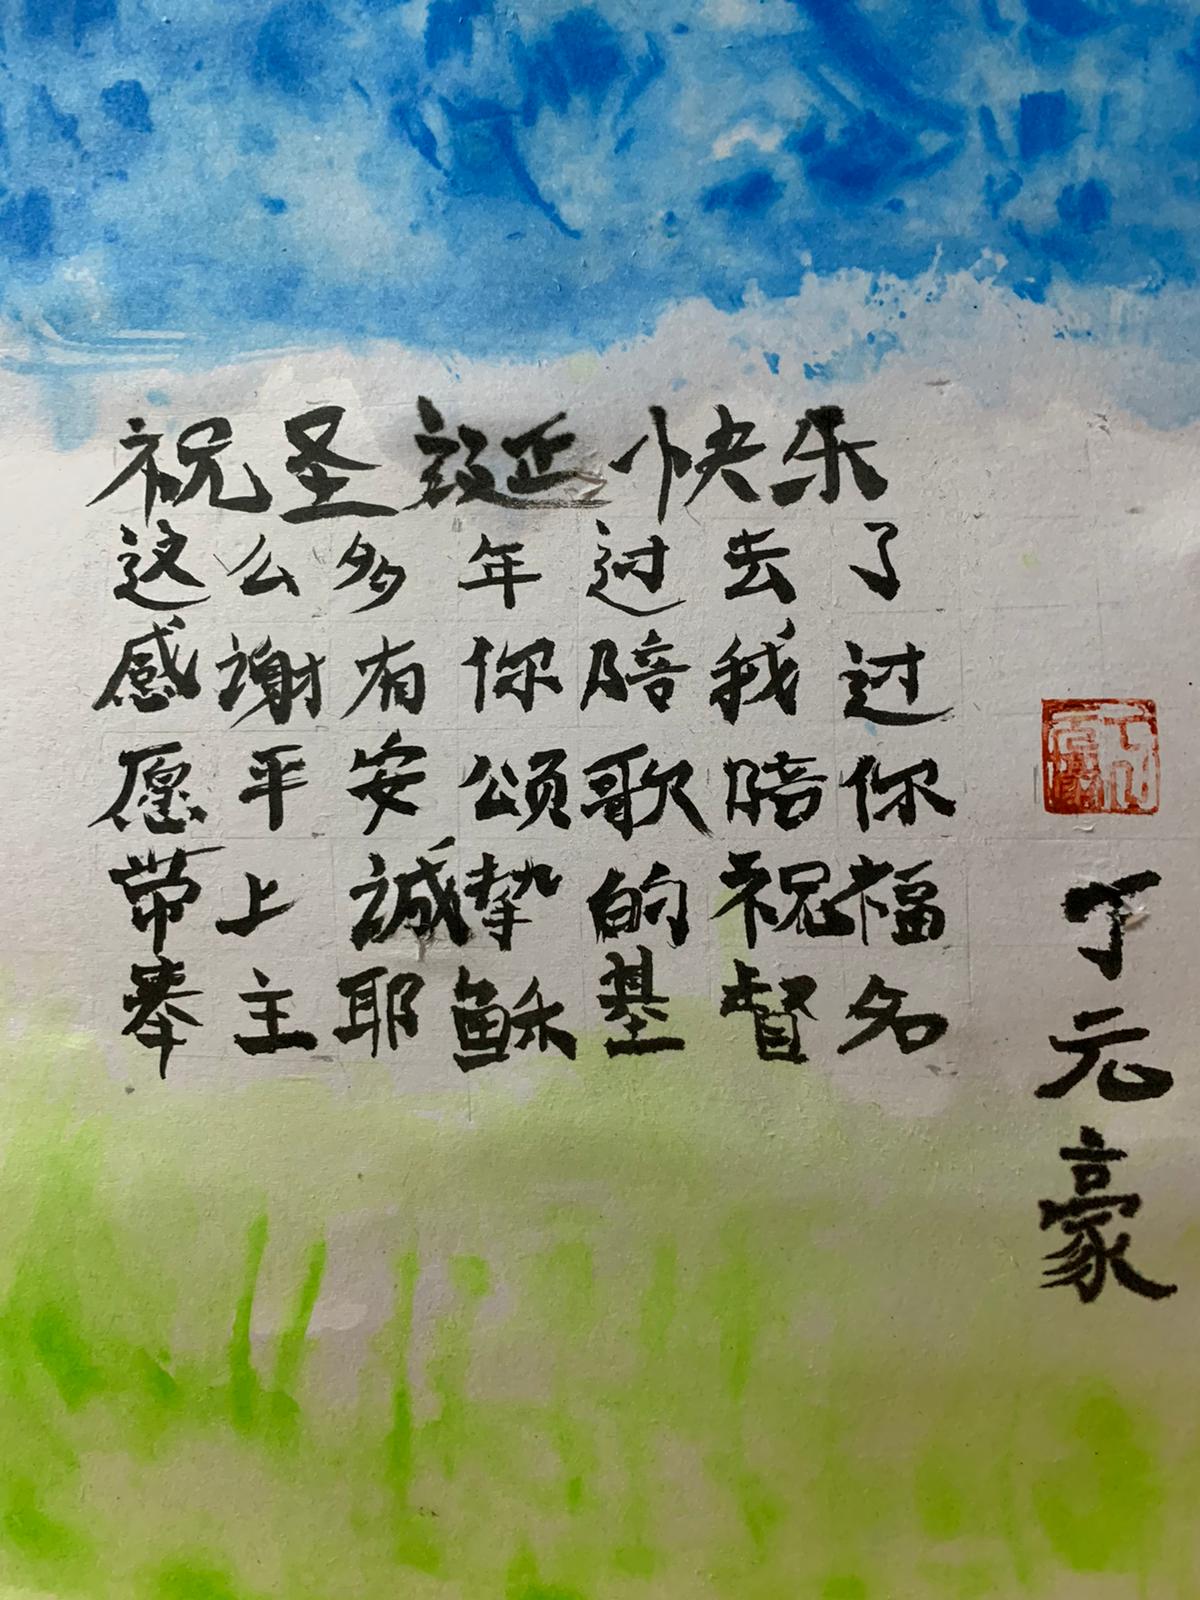 祝圣诞快乐
这么多年过去了
感谢有你陪我过
愿平安颂歌陪你
带上誠挚的祝福
奉主耶稣基督名
丁元豪